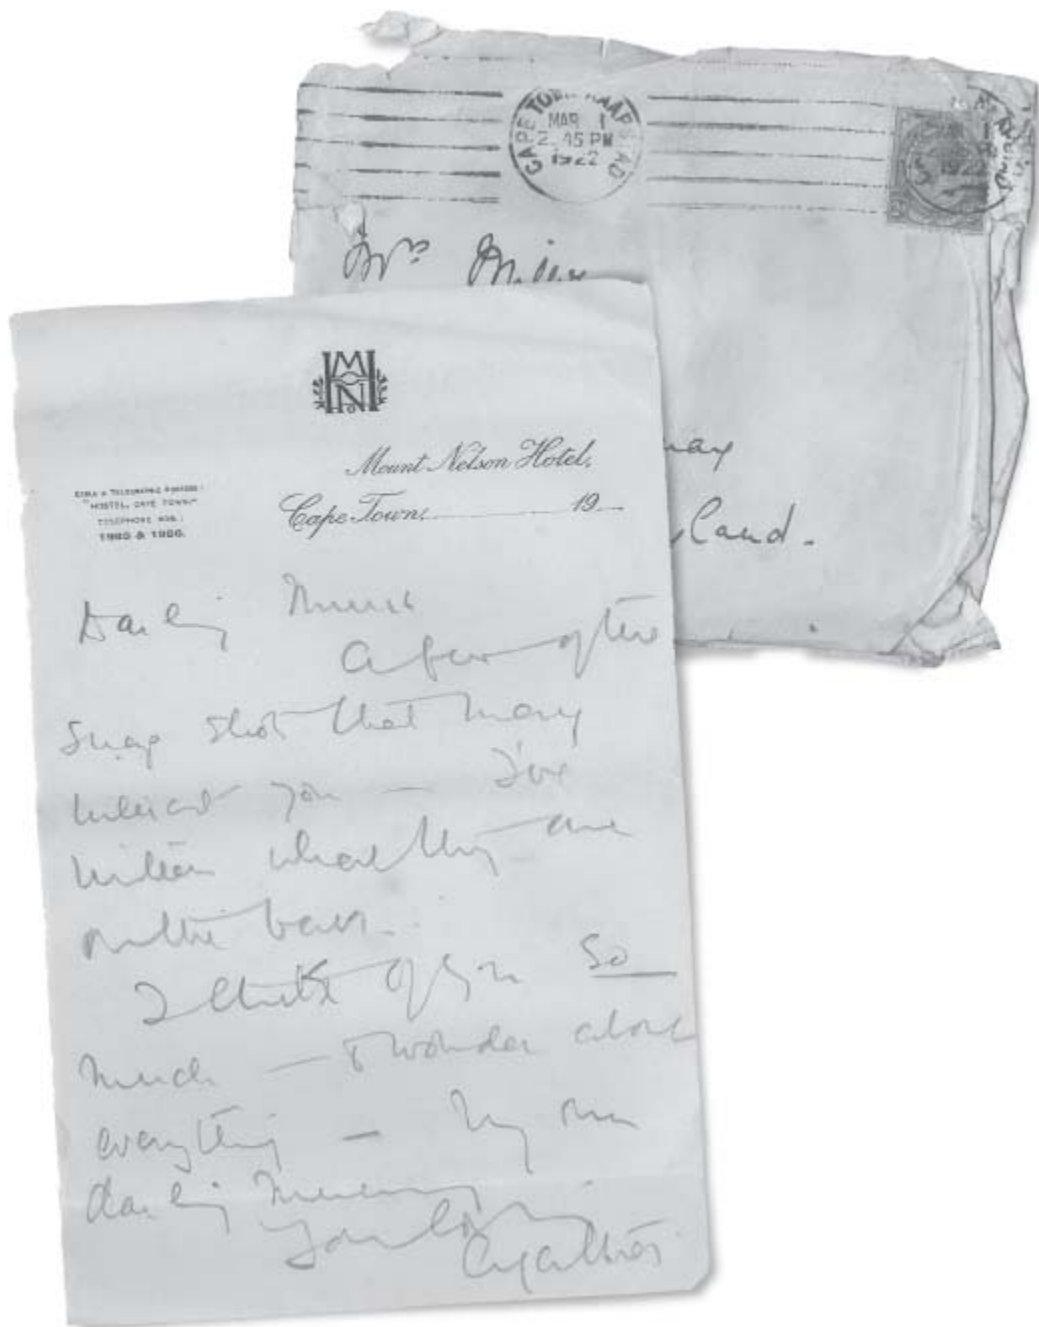 CAPE TOWN KAAPSTAD
MAR 1
2.45 PM
1922
1922
Mrs Miller
MHN
Mount Nelson Hotel,
CABLE & TELEGRAPHIC ADDRESS:
"HOSTEL, CAPE TOWN"
TELEPHONE NOS.:
Cape Town, 19
uay
land.
Darling Mum
A few of the
Snap shots that may
interest you — I've
written what they are
on the back.
I think of you So
much — & wonder about
everything — My own
darling Mummy
Your loving
Agatha